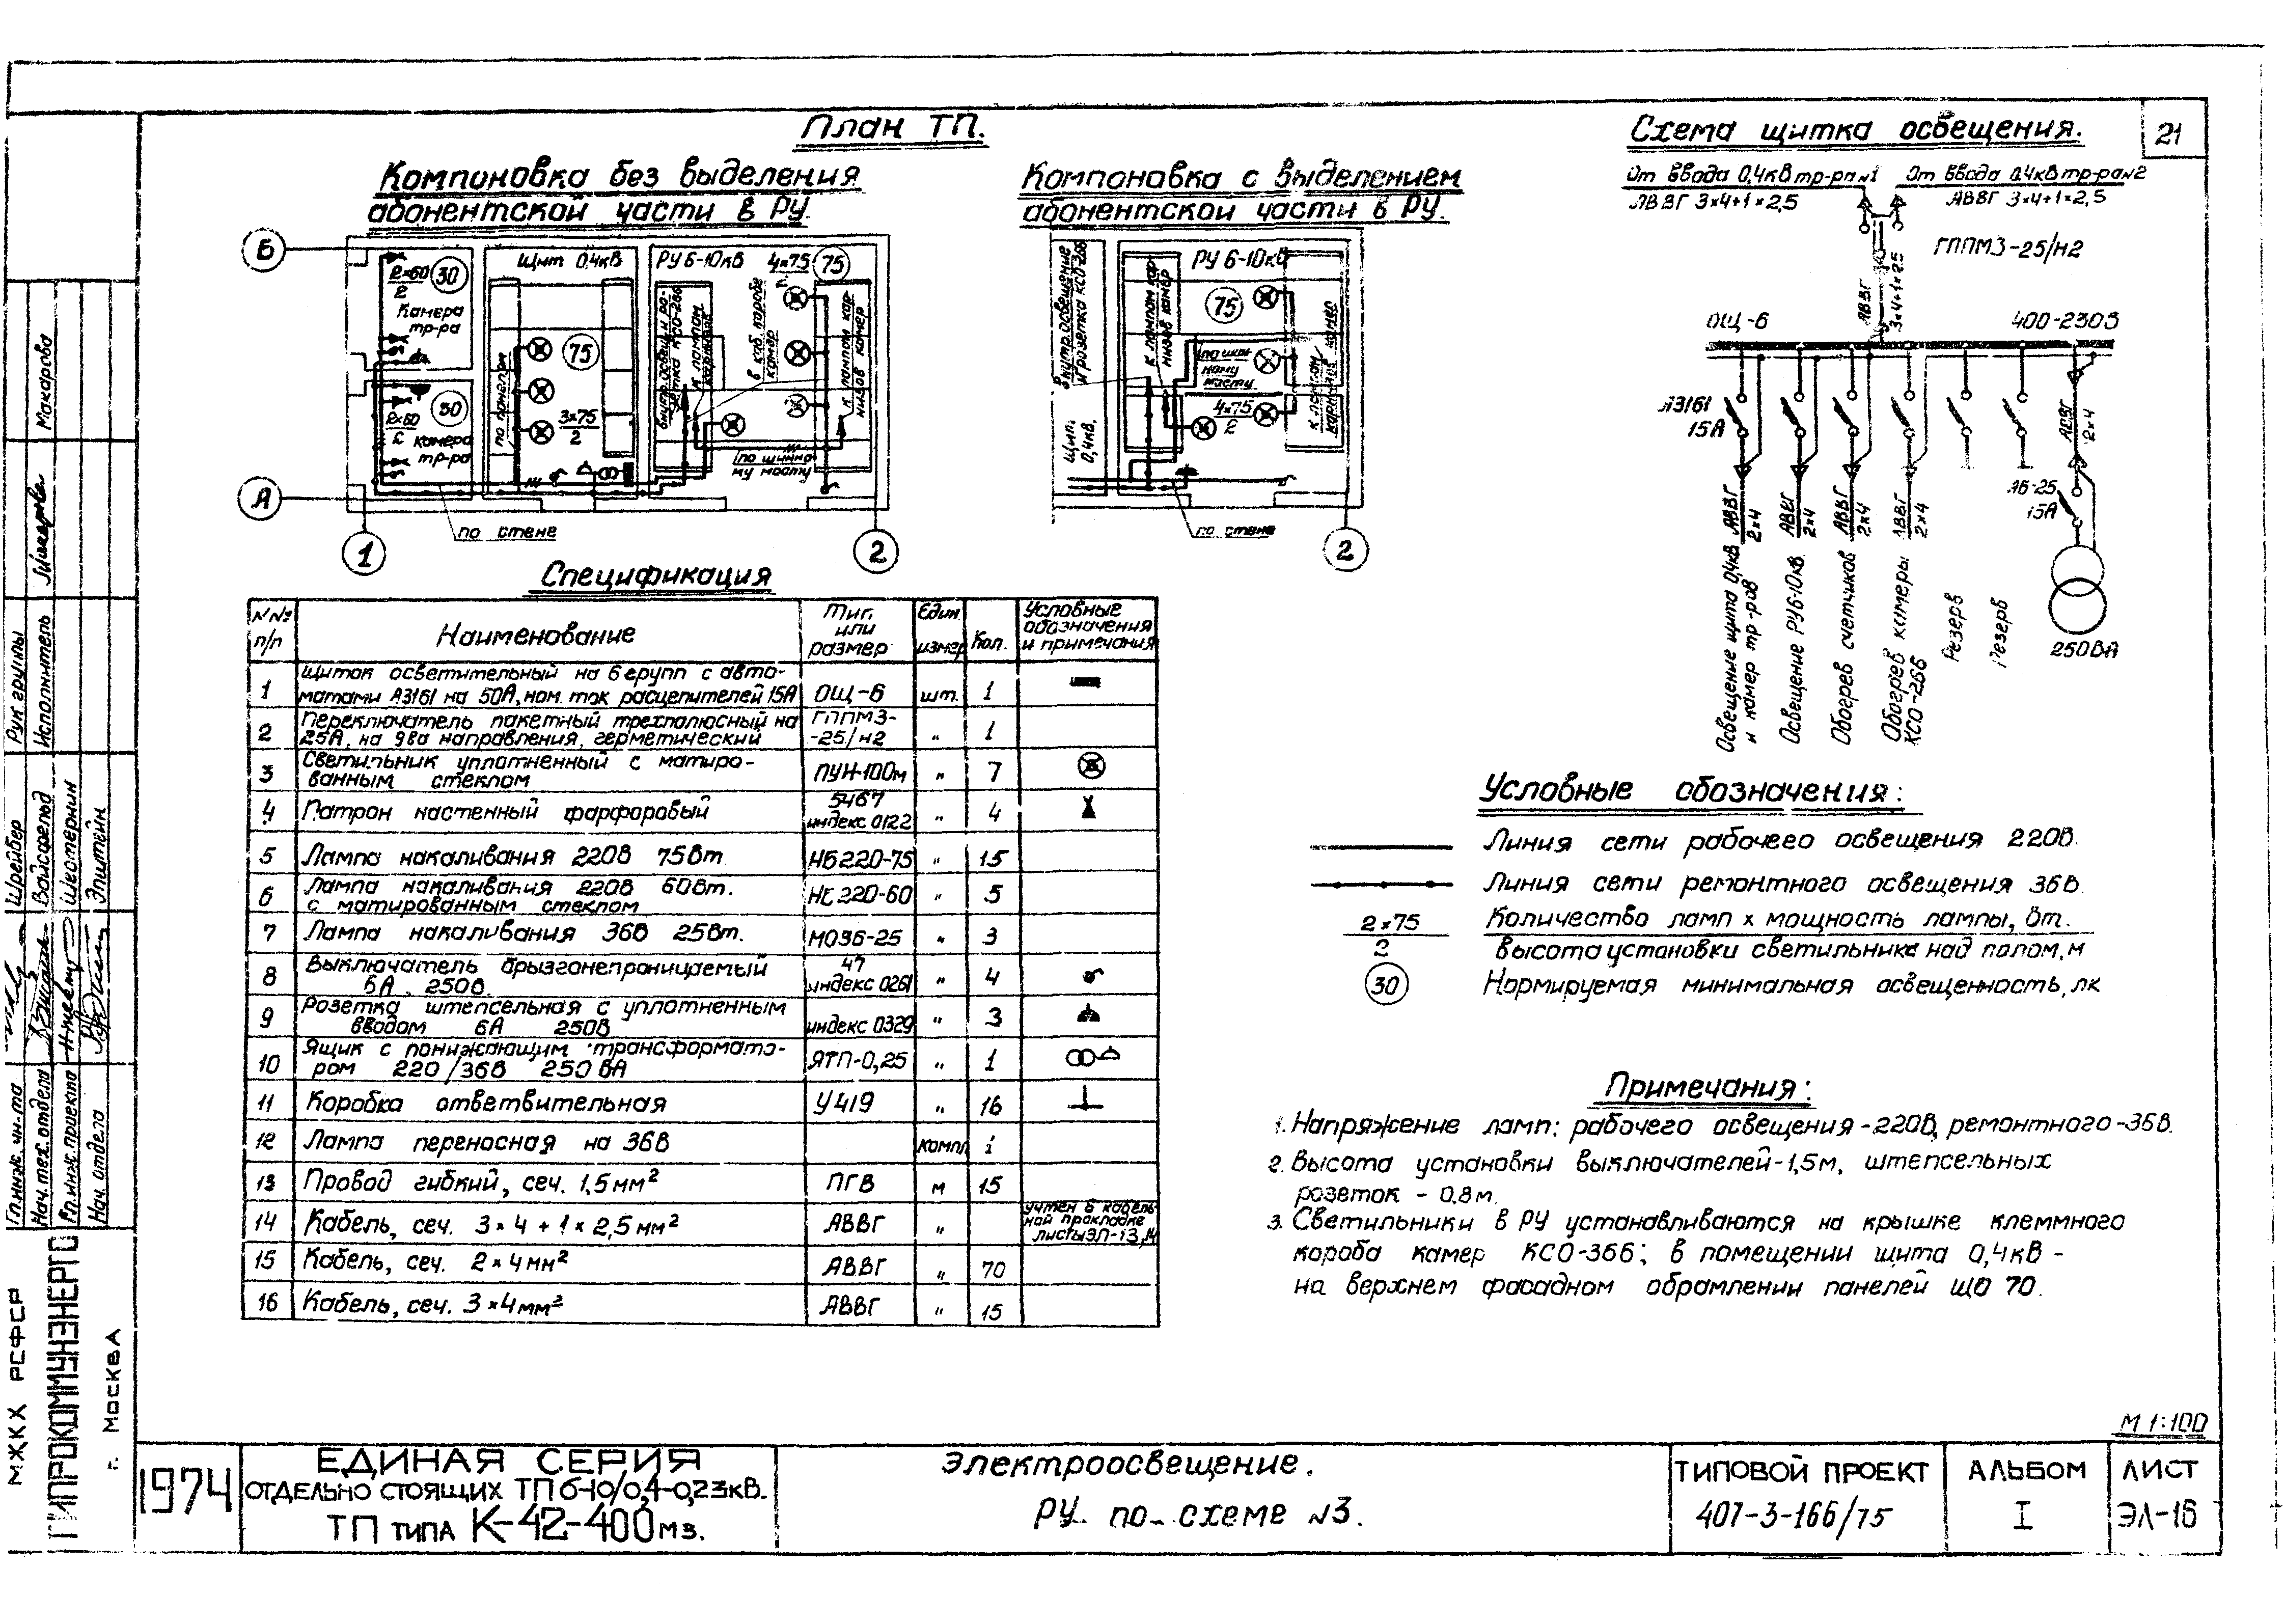 План ТП.
Схема щитка освещения.
21
Компоновка без выделения
абонентской части в РУ.
Компоновка с выделением
абонентской части в РУ.
От ввода 0,4кВ тр-ра N1
АВВГ 3×4+1×2,5
От ввода 0.4кВ тр-ра N2
АВВГ 3×4+1×2,5
ГППМ3-25/н2
АВВГ
3×4+1×2,5
ОЩ-6
400-230В
А3161
15А
АВВГ
2×4
АВВГ
2×4
АВВГ
2×4
АВВГ
2×4
АВВГ
2×4
АБ-25
15А
250ВА
Освещение щита 0,4кВ
и камер тр-ров
Освещение РУ6-10кв.
Обогрев счетчиков
Обогрев камеры
КСО-266
Резерв
Резерв
Б
А
1
2
2×60
2
30
Камера
тр-ра
2×60
2
30
камера
тр-ра
Щит 0,4кВ
75
3×75
2
по панелям
РУ 6-10кВ
4×75
75
к лампам
в каб. коробе
камер
к лампам кар-
низов камер
по шинно-
му мосту
по стене
РУ 6-10кВ
75
внутр. освещение
и розетка КСО-266
к лампам кар-
низов камер
по шин-
ному
мосту
4×75
2
к лампам
карнизов камер
Щит.
0,4кВ.
по стене
2
Спецификация
N№ п/п
Наименование
Тип. или размер
Един измер
Кол.
Условные обозначения и примечания
1 Щиток осветительный на 6 групп с авто-
матами А3161 на 50А, ном. ток расцепителей 15А ОЩ-6 шт. 1
2 Переключатель пакетный трехполюсный на
25А, на два направления, герметический ГППМ3-
-25/н2 " 1
3 Светильник уплотненный с матиро-
ванным стеклом ПУН-100м " 7
4 Патрон настенный фарфоровый 5467
индекс 0122 " 4
5 Лампа накаливания 220В 75Вт НБ220-75 " 15
6 Лампа накаливания 220В 60Вт.
с матированным стеклом НБ220-60 " 5
7 Лампа накаливания 36В 25Вт. МО36-25 " 3
8 Выключатель брызгонепроницаемый
6А. 250В. 47
индекс 0261 " 4
9 Розетка штепсельная с уплотненным
вводом 6А 250В индекс 0329 " 3
10 Ящик с понижающим трансформато-
ром 220/36В 250ВА ЯТП-0,25 " 1
11 Коробка ответвительная У419 " 16
12 Лампа переносная на 36В компл 1
13 Провод гибкий, сеч. 1,5мм² ПГВ м 15
14 Кабель, сеч. 3×4+1×2,5мм² АВВГ " учтен в кабель-
ной прокладке
листы ЭЛ-13,14
15 Кабель, сеч. 2×4мм² АВВГ " 70
16 Кабель, сеч. 3×4мм² АВВГ " 15
Условные обозначения:
Линия сети рабочего освещения 220В.
Линия сети ремонтного освещения 36В.
2×75 Количество ламп х мощность лампы, вт.
2 высота установки светильника над полом, м
30 Нормируемая минимальная освещенность, лк
Примечания:
1. Напряжение ламп: рабочего освещения-220В, ремонтного-36В.
2. Высота установки выключателей-1,5м, штепсельных
розеток - 0,8м.
3. Светильники в РУ устанавливаются на крышке клеммного
короба камер КСО-366; в помещении щита 0,4кВ -
на верхнем фасадном обрамлении панелей ЩО 70.
М 1:100
1974
ЕДИНАЯ СЕРИЯ
ОТДЕЛЬНО СТОЯЩИХ ТП 6-10/0,4-0,23кВ.
ТП ТИПА К-42-400м3.
Электроосвещение.
РУ по схеме N3.
ТИПОВОЙ ПРОЕКТ
407-3-166/75
АЛЬБОМ
I
ЛИСТ
ЭЛ-16
МЖКХ РСФСР
ГИПРОКОММУНЭНЕРГО
г. Москва
Гл.инж. ин-та
Нач. тех. отдела
Гл.инж. проекта
Нач. отдела
Шрейбер
Вайсфельд
Шестернин
Эпштейн
Рук группы
Исполнитель
Макарова